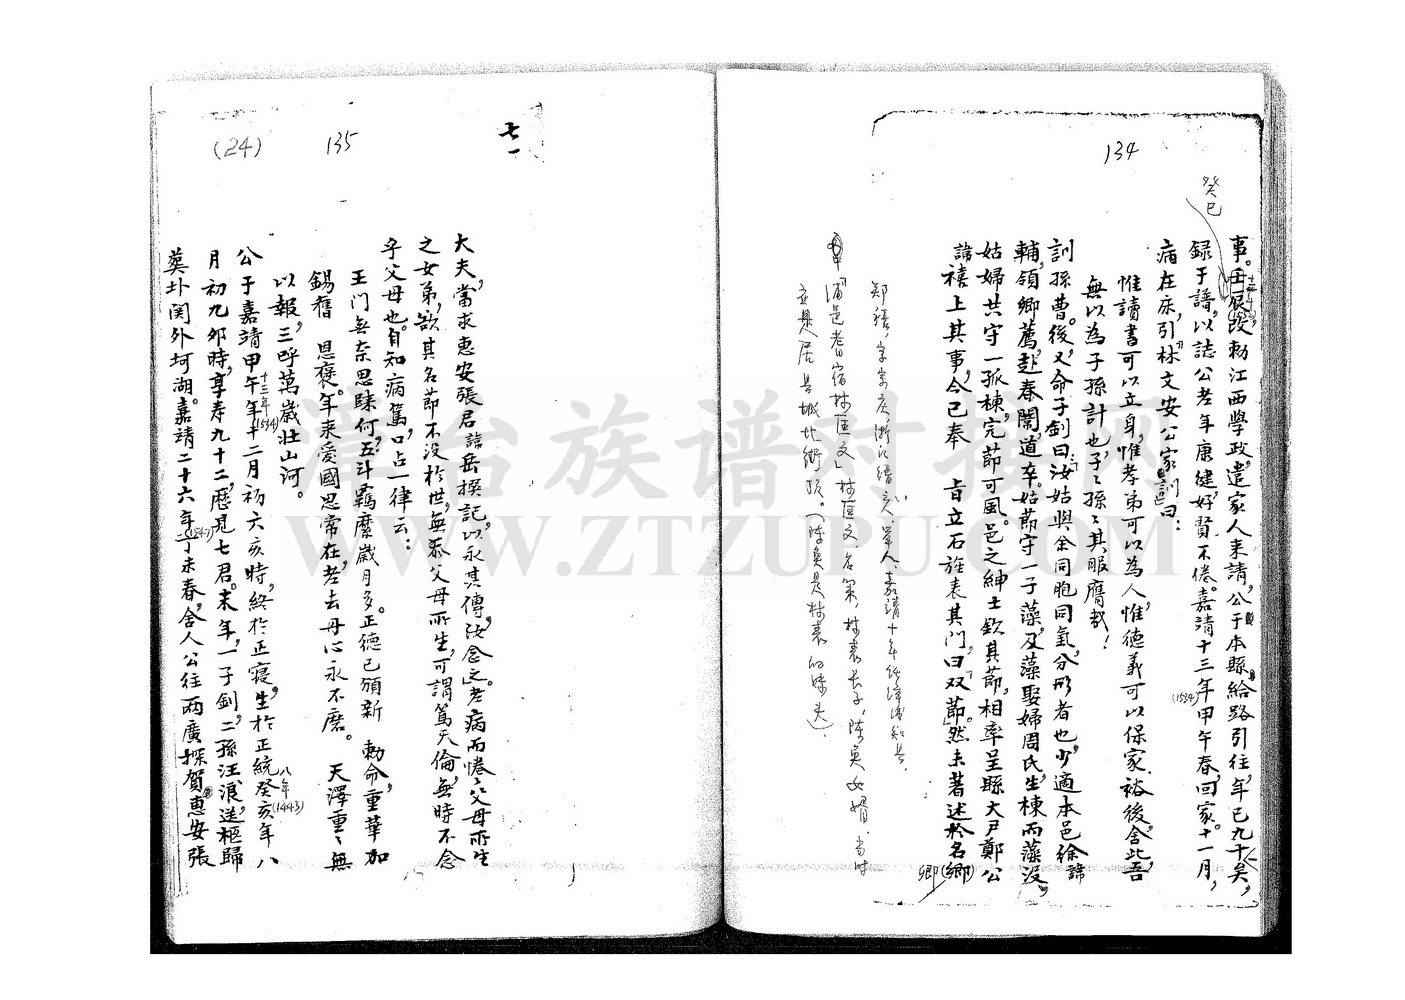 134
癸巳
事。壬辰改勅江西學政，遣家人来請，公于本縣給路引往，年已九十矣，
十一年
(1532)
録于譜，以誌公老年康健，好賢不倦。嘉靖十三年甲午春，回家。十一月，
(1534)
病在床，引林文安公家訓曰：
惟讀書可以立身，惟孝弟可以為人，惟德義可以保家裕後，舍此，吾
無以為子孫計也，子子孫孫其服膺哉！
訓孫曹。後，又命子釗曰：汝姑與余同胞同氣，分形者也，少適本邑徐諱
輔，領鄉薦，赴春闈，道卒。姑節守一子藻，及藻娶婦周氏，生棟而藻没，
姑婦共守一孤棟，完節可風。邑之紳士欽其節，相率呈縣大尹鄭公
諱禧上其事，今已奉　旨立石旌表其門，曰双節。然未著述於名鄉
卿(鄉)
郑禧，字宗庆，浙江缙云人，举人，嘉靖十年任漳浦知县。
酒是耆宿林匡文」林匡文名策，林表长子，陈奂女婿，当时
应是居县城北街顶。(陈奂是林表的妹夫)
135
(24)
七一
大夫，當求惠安張君諱岳撰記，以永其傳，汝念之。老病而惓惓父母所生
之女弟，欲其名節不没於世，無忝父母所生，可謂篤天倫，無時不念
乎父母也。自知病篤，口占一律云：
王门無奈思睐何，五斗羁縻歲月多。正德已頒新　勅命，重華加
錫舊　恩褒。年来爱國思常在，老去丹心永不磨。　天澤重重無
以報，三呼萬歲壮山河。
公于嘉靖甲午年十二月初六亥時，終於正寝，生於正統癸亥年八
十三年
(1534)
八年
(1443)
月初九卯時，享寿九十二，歷見七君。末年，一子釗，二孫汪浪送柩歸
葬圤闗外坷湖。嘉靖二十六年丁未春，舍人公往两廣探賀惠安張
(1547)
灌台族谱对接网
WWW.ZTZUPU.COM